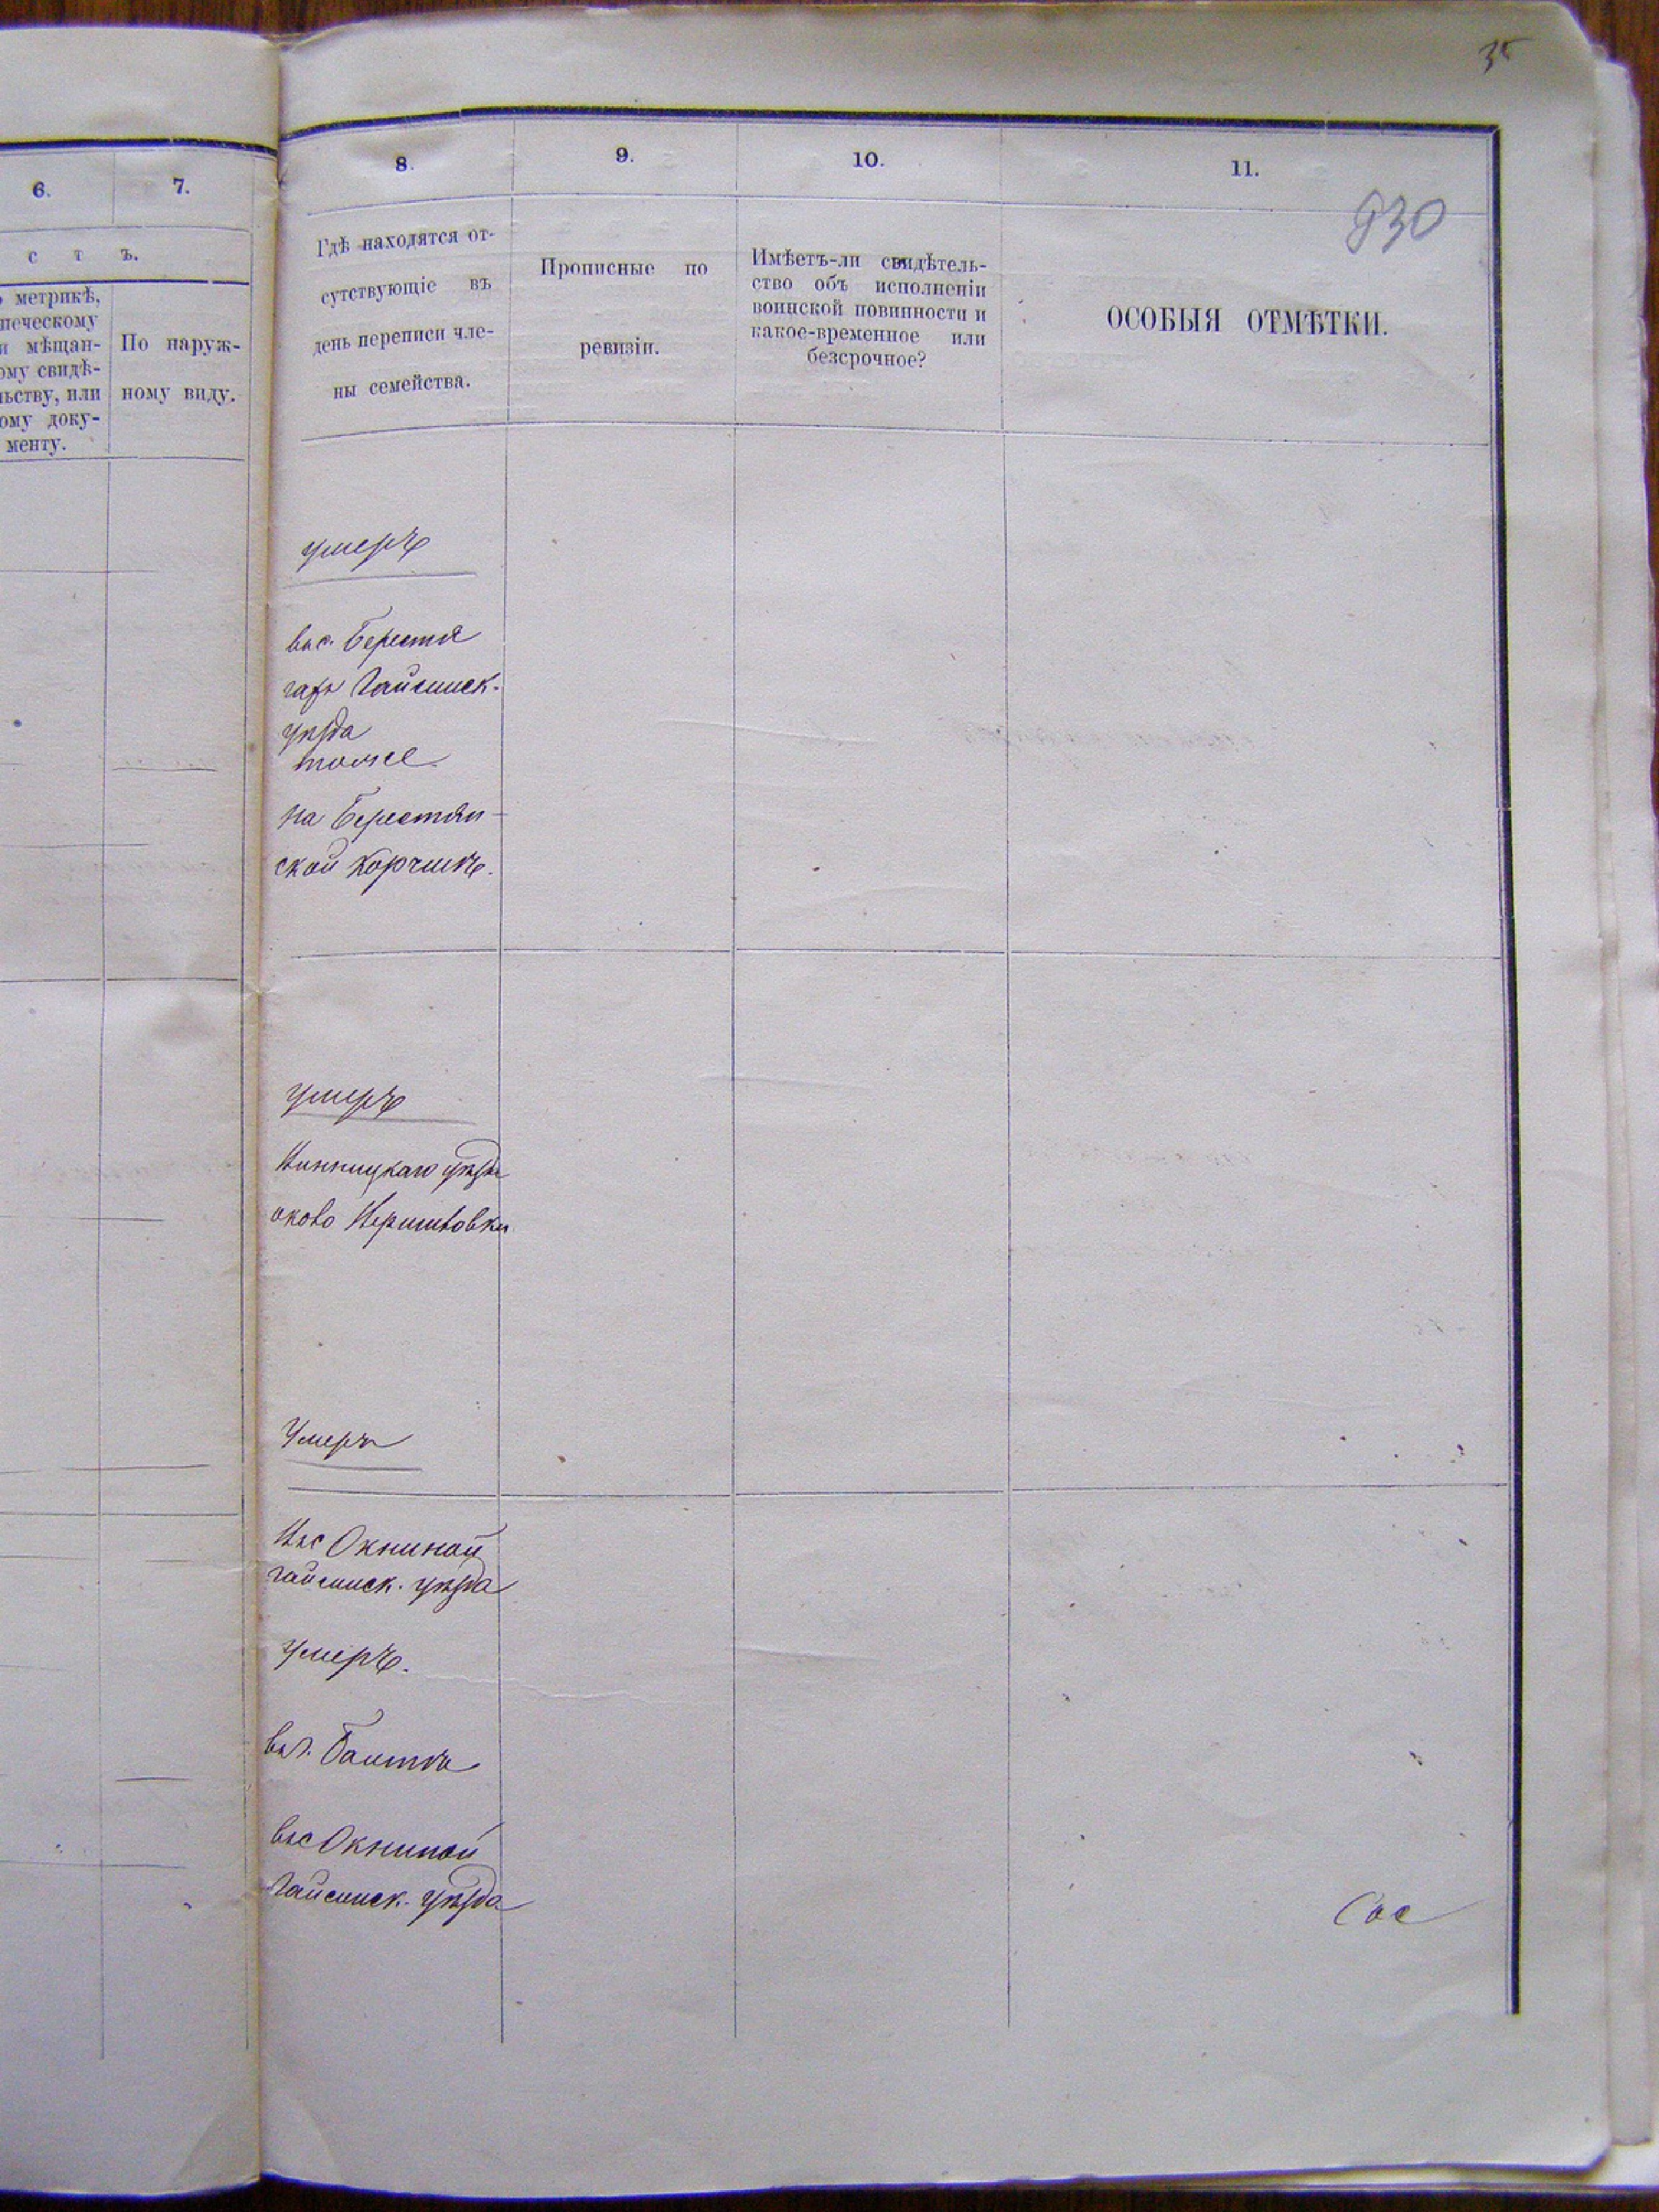 35
6.
7.
8.
9.
10.
11.
830
с т ъ.
метрикѣ,
мѣщан-
ому свидѣ-
льству, или
ому доку-
менту.
По наруж-
ному виду.
Гдѣ находятся от-
сутствующіе въ
день переписи чле-
ны семейства.
Прописные по
ревизіи.
Имѣетъ-ли свидѣтель-
ство объ исполненіи
воинской повинности и
какое-временное или
безсрочное?
ОСОБЫЯ ОТМѢТКИ.
умеръ
въ с. Берестя
гахъ Гайсинск.
уѣзда
тоже
на Берестян-
ской Корчмѣ.
умеръ
Винницкаго уѣзда
около
Умеръ
Въ с Окниной
гайсинск. уѣзда
умеръ.
въ
въ с Окниной
Гайсинск. уѣзда
Сос